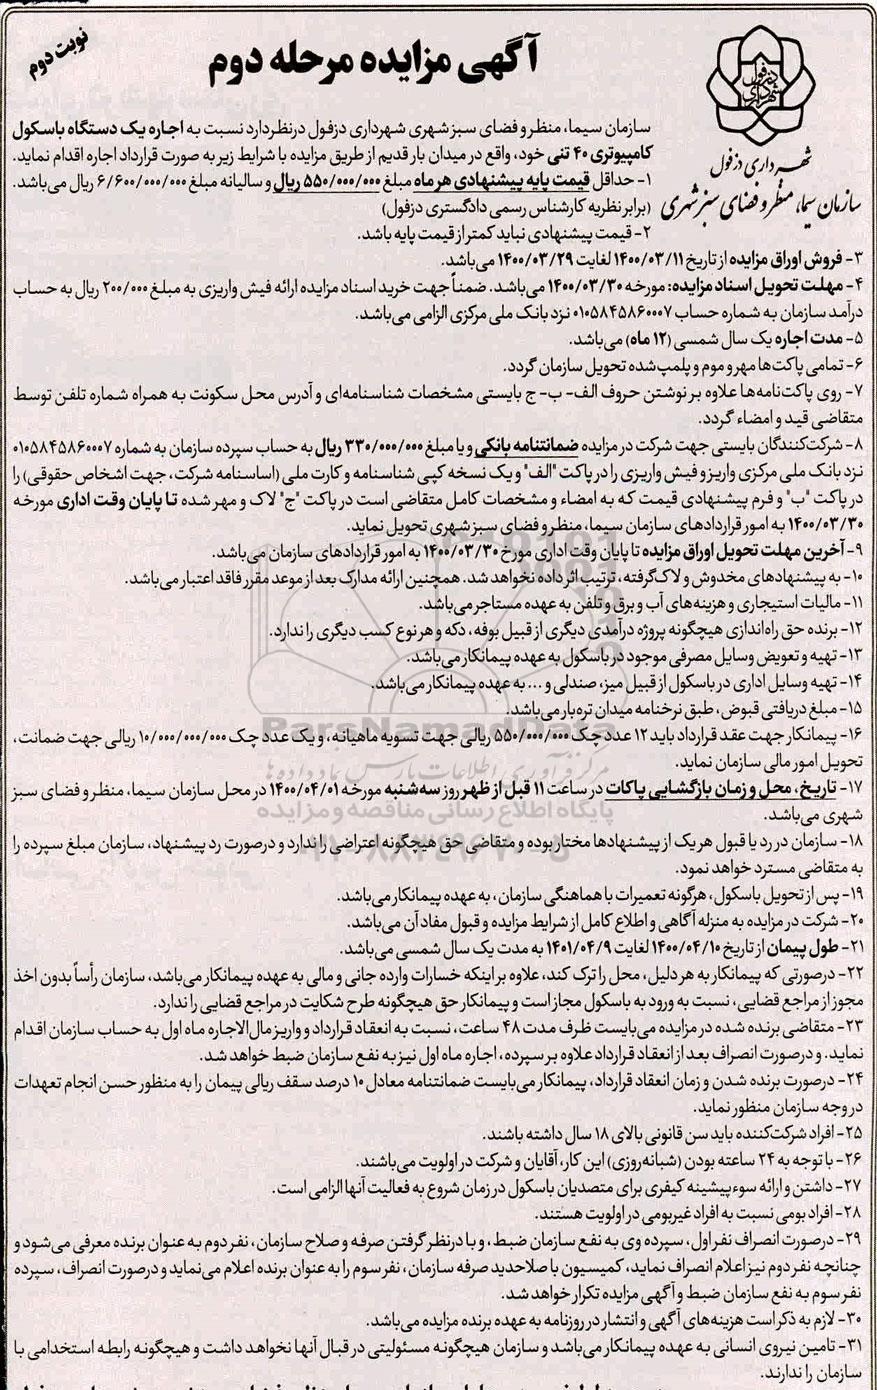 نوبت دوم
آگهی مزایده مرحله دوم
شهرداری دزفول
سازمان سیما، منظر و فضای سبز شهری
سازمان سیما، منظر و فضای سبز شهری شهرداری دزفول درنظر دارد نسبت به اجاره یک دستگاه باسکول
کامپیوتری ۴۰ تنی خود، واقع در میدان بار قدیم از طریق مزایده با شرایط زیر به صورت قرارداد اجاره اقدام نماید.
۱- حداقل قیمت پایه پیشنهادی هر ماه مبلغ ۵۵۰/۰۰۰/۰۰۰ ریال و سالیانه مبلغ ۶/۶۰۰/۰۰۰/۰۰۰ ریال می‌باشد.
(برابر نظریه کارشناس رسمی دادگستری دزفول)
۲- قیمت پیشنهادی نباید کمتر از قیمت پایه باشد.
۳- فروش اوراق مزایده از تاریخ ۱۴۰۰/۰۳/۱۱ لغایت ۱۴۰۰/۰۳/۲۹ می‌باشد.
۴- مهلت تحویل اسناد مزایده: مورخه ۱۴۰۰/۰۳/۳۰ می‌باشد. ضمناً جهت خرید اسناد مزایده ارائه فیش واریزی به مبلغ ۲۰۰/۰۰۰ ریال به حساب
درآمد سازمان به شماره حساب ۰۱۰۵۸۴۵۸۶۰۰۰۷ نزد بانک ملی مرکزی الزامی می‌باشد.
۵- مدت اجاره یک سال شمسی (۱۲ ماه) می‌باشد.
۶- تمامی پاکت‌ها مهر و موم و پلمپ شده تحویل سازمان گردد.
۷- روی پاکت‌نامه‌ها علاوه بر نوشتن حروف الف- ب- ج بایستی مشخصات شناسنامه‌ای و آدرس محل سکونت به همراه شماره تلفن توسط
متقاضی قید و امضاء گردد.
۸- شرکت‌کنندگان بایستی جهت شرکت در مزایده ضمانتنامه بانکی و یا مبلغ ۳۳۰/۰۰۰/۰۰۰ ریال به حساب سپرده سازمان به شماره ۰۱۰۵۸۴۵۸۶۰۰۰۷
نزد بانک ملی مرکزی واریز و فیش واریزی را در پاکت "الف" و یک نسخه کپی شناسنامه و کارت ملی (اساسنامه شرکت، جهت اشخاص حقوقی) را
در پاکت "ب" و فرم پیشنهادی قیمت که به امضاء و مشخصات کامل متقاضی است در پاکت "ج" لاک و مهر شده تا پایان وقت اداری مورخه
۱۴۰۰/۰۳/۳۰ به امور قراردادهای سازمان سیما، منظر و فضای سبز شهری تحویل نماید.
۹- آخرین مهلت تحویل اوراق مزایده تا پایان وقت اداری مورخ ۱۴۰۰/۰۳/۳۰ به امور قراردادهای سازمان می‌باشد.
۱۰- به پیشنهادهای مخدوش و لاک‌گرفته، ترتیب اثر داده نخواهد شد. همچنین ارائه مدارک بعد از موعد مقرر فاقد اعتبار می‌باشد.
۱۱- مالیات استیجاری و هزینه‌های آب و برق و تلفن به عهده مستاجر می‌باشد.
۱۲- برنده حق راه‌اندازی هیچگونه پروژه درآمدی دیگری از قبیل بوفه، دکه و هر نوع کسب دیگری را ندارد.
۱۳- تهیه و تعویض وسایل مصرفی موجود در باسکول به عهده پیمانکار می‌باشد.
۱۴- تهیه وسایل اداری در باسکول از قبیل میز، صندلی و ... به عهده پیمانکار می‌باشد.
۱۵- مبلغ دریافتی قبوض، طبق نرخنامه میدان تره‌بار می‌باشد.
۱۶- پیمانکار جهت عقد قرارداد باید ۱۲ عدد چک ۵۵۰/۰۰۰/۰۰۰ ریالی جهت تسویه ماهیانه، و یک عدد چک ۱۰/۰۰۰/۰۰۰/۰۰۰ ریالی جهت ضمانت،
تحویل امور مالی سازمان نماید.
۱۷- تاریخ، محل و زمان بازگشایی پاکات در ساعت ۱۱ قبل از ظهر روز سه‌شنبه مورخه ۱۴۰۰/۰۴/۰۱ در محل سازمان سیما، منظر و فضای سبز
شهری می‌باشد.
۱۸- سازمان در رد یا قبول هر یک از پیشنهادها مختار بوده و متقاضی حق هیچگونه اعتراضی را ندارد و درصورت رد پیشنهاد، سازمان مبلغ سپرده را
به متقاضی مسترد خواهد نمود.
۱۹- پس از تحویل باسکول، هرگونه تعمیرات با هماهنگی سازمان، به عهده پیمانکار می‌باشد.
۲۰- شرکت در مزایده به منزله آگاهی و اطلاع کامل از شرایط مزایده و قبول مفاد آن می‌باشد.
۲۱- طول پیمان از تاریخ ۱۴۰۰/۰۴/۱۰ لغایت ۱۴۰۱/۰۴/۹ به مدت یک سال شمسی می‌باشد.
۲۲- درصورتی که پیمانکار به هر دلیل، محل را ترک کند، علاوه بر اینکه خسارات وارده جانی و مالی به عهده پیمانکار می‌باشد، سازمان رأساً بدون اخذ
مجوز از مراجع قضایی، نسبت به ورود به باسکول مجاز است و پیمانکار حق هیچگونه طرح شکایت در مراجع قضایی را ندارد.
۲۳- متقاضی برنده شده در مزایده می‌بایست ظرف مدت ۴۸ ساعت، نسبت به انعقاد قرارداد و واریز مال‌الاجاره ماه اول به حساب سازمان اقدام
نماید. و درصورت انصراف بعد از انعقاد قرارداد علاوه بر سپرده، اجاره ماه اول نیز به نفع سازمان ضبط خواهد شد.
۲۴- درصورت برنده شدن و زمان انعقاد قرارداد، پیمانکار می‌بایست ضمانتنامه معادل ۱۰ درصد سقف ریالی پیمان را به منظور حسن انجام تعهدات
در وجه سازمان منظور نماید.
۲۵- افراد شرکت‌کننده باید سن قانونی بالای ۱۸ سال داشته باشند.
۲۶- با توجه به ۲۴ ساعته بودن (شبانه‌روزی) این کار، آقایان و شرکت در اولویت می‌باشند.
۲۷- داشتن و ارائه سوءپیشینه کیفری برای متصدیان باسکول در زمان شروع به فعالیت آنها الزامی است.
۲۸- افراد بومی نسبت به افراد غیربومی در اولویت هستند.
۲۹- درصورت انصراف نفر اول، سپرده وی به نفع سازمان ضبط، و با درنظر گرفتن صرفه و صلاح سازمان، نفر دوم به عنوان برنده معرفی می‌شود و
چنانچه نفر دوم نیز اعلام انصراف نماید، کمیسیون با صلاحدید صرفه سازمان، نفر سوم را به عنوان برنده اعلام می‌نماید و درصورت انصراف، سپرده
نفر سوم به نفع سازمان ضبط و آگهی مزایده تکرار خواهد شد.
۳۰- لازم به ذکر است هزینه‌های آگهی و انتشار در روزنامه به عهده برنده مزایده می‌باشد.
۳۱- تامین نیروی انسانی به عهده پیمانکار می‌باشد و سازمان هیچگونه مسئولیتی در قبال آنها نخواهد داشت و هیچگونه رابطه استخدامی با
سازمان را ندارند.
ParsNamadData
مرکز فرآوری اطلاعات پارس نماد داده‌ها
پایگاه اطلاع رسانی مناقصه و مزایده